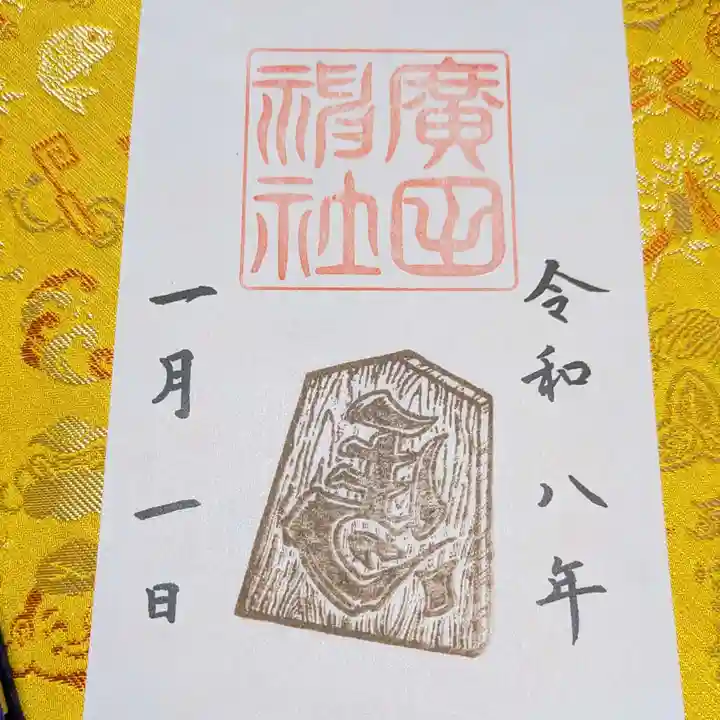 廣田
神社
令和八年
一月一日